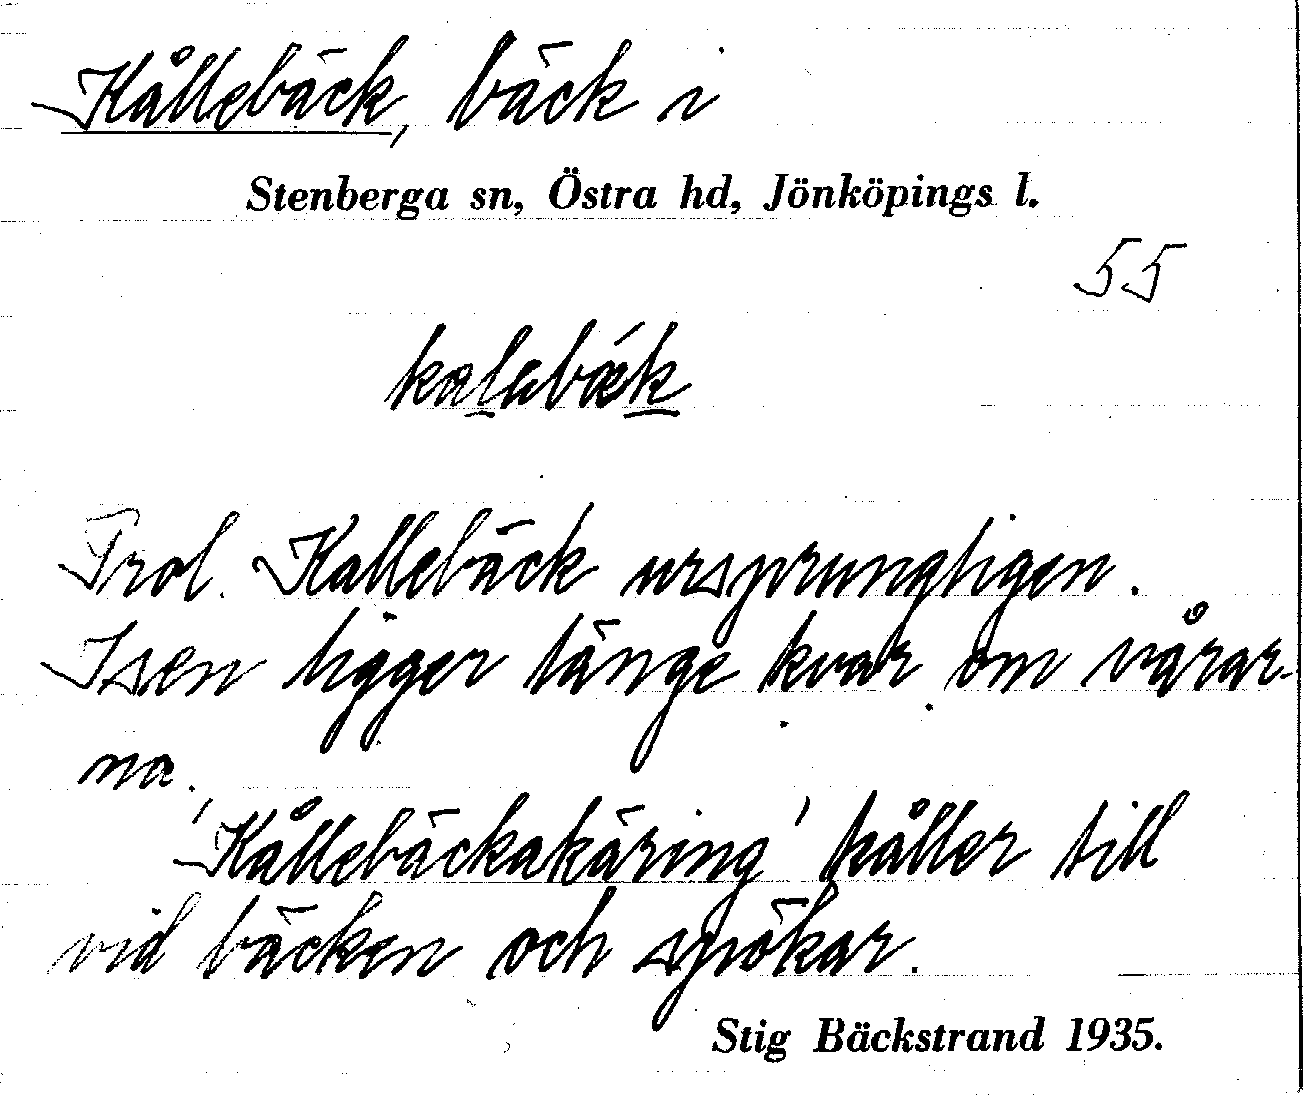 Kållebäck, bäck i
Stenberga sn, Östra hd, Jönköpings l.
55
Trol. Kallebäck ursprungligen.
Isen ligger länge kvar om vårar-
na.
'Kållebäckakäring' håller till
vid bäcken och spökar.
Stig Bäckstrand 1935.